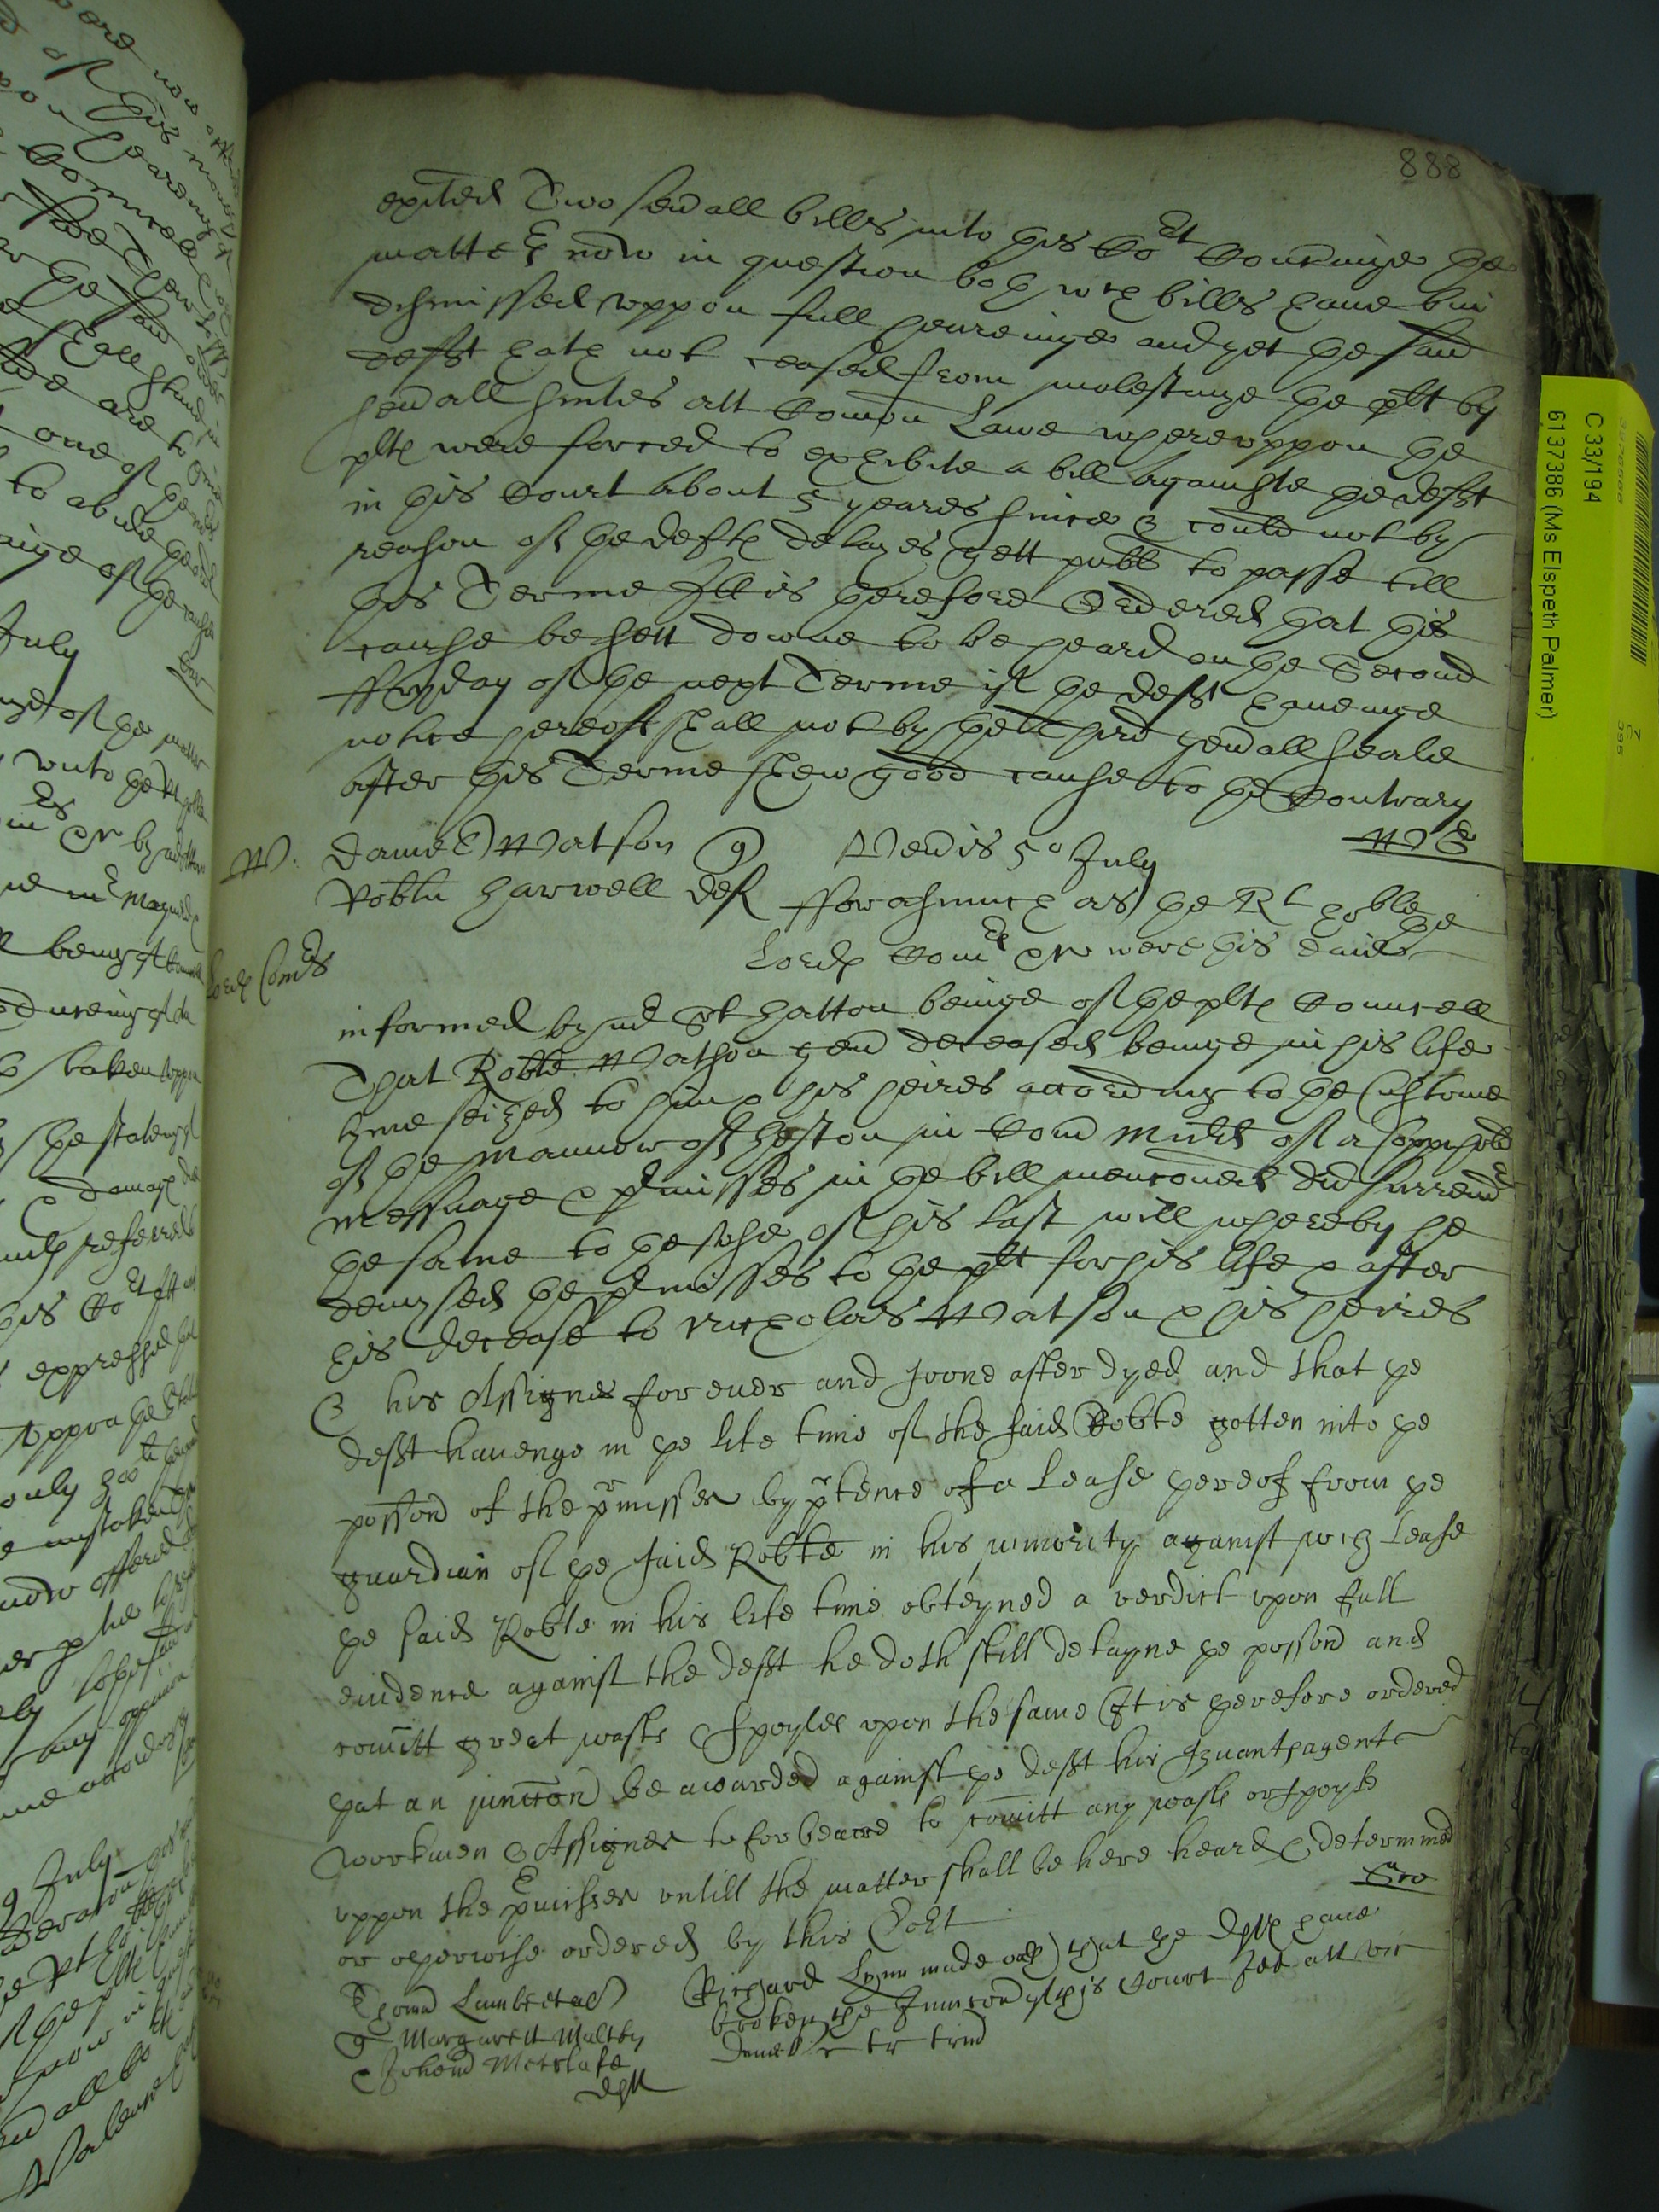 888
exited Two sevall billes into this Cort concerninge the
matters now in question both wch bills have bin
dismissed uppon full heareinge and yet the said
defft hath not ceased from molestinge the plt by
sevall suites att Comon Lawe whereuppon the
plts were forced to exhibite a bill againste the defft
in this Court about 5 yeares since & could not by
reason of the defts delayes gett publ to passe till
this Terme It is therefore Ordered that this
cause be sett downe to be heard on the Second
ffryday of the next Terme if the defft haveinge
notice hereof shall not by the third genall seale
after this Terme shew good cause to the Contrary
W: David Watson q Mercurii 5o July
Robtu Harwell def fforasmuch as the Rt hoble the
Lords Comrs Lords Comrs &c were this daie
informed by mr St Hatton beinge of the plts Councell
That Robte Watson gen deceased beinge in his life
tyme seized to him & his heires according to the Custome
of the mannor of Heston in Com Midds of a Coppihold
messuage & pmisses in the bill menconed did surrendr
the same to the use of his last will whereby he
devysed the pmisses to the plt for his life & after
his decease to Nicholas Watson & his heires
& his Assignes for ever and soone after dyed and that the
defft havenge in the life time of the said Robte gotten into the
posson of the prmisses by prtence of a Lease thereof from the
guardian of the said Robte in his minority against wch Lease
the said Robte in his life time obteyned a verdict upon full
evidence against the defft he doth still detayne the posson and
comitt great waste & spoyles upon the same It is therefore ordered
that an iuncton be awarded against the defft his Servants agents
workmen & Assignes to forbeare to comitt any waste or spoyle
uppon the prmisses untill the matter shall be here heard & determined
or otherwise ordered by this Cort
Thoma Lambert
q Margarett Maltby
& Johem Metcalfe
deft
Richard Lynn made oath that the defts have
broken the Iniuncon of this Court
C 33/194
6137386 (Ms Elspeth Palmer)